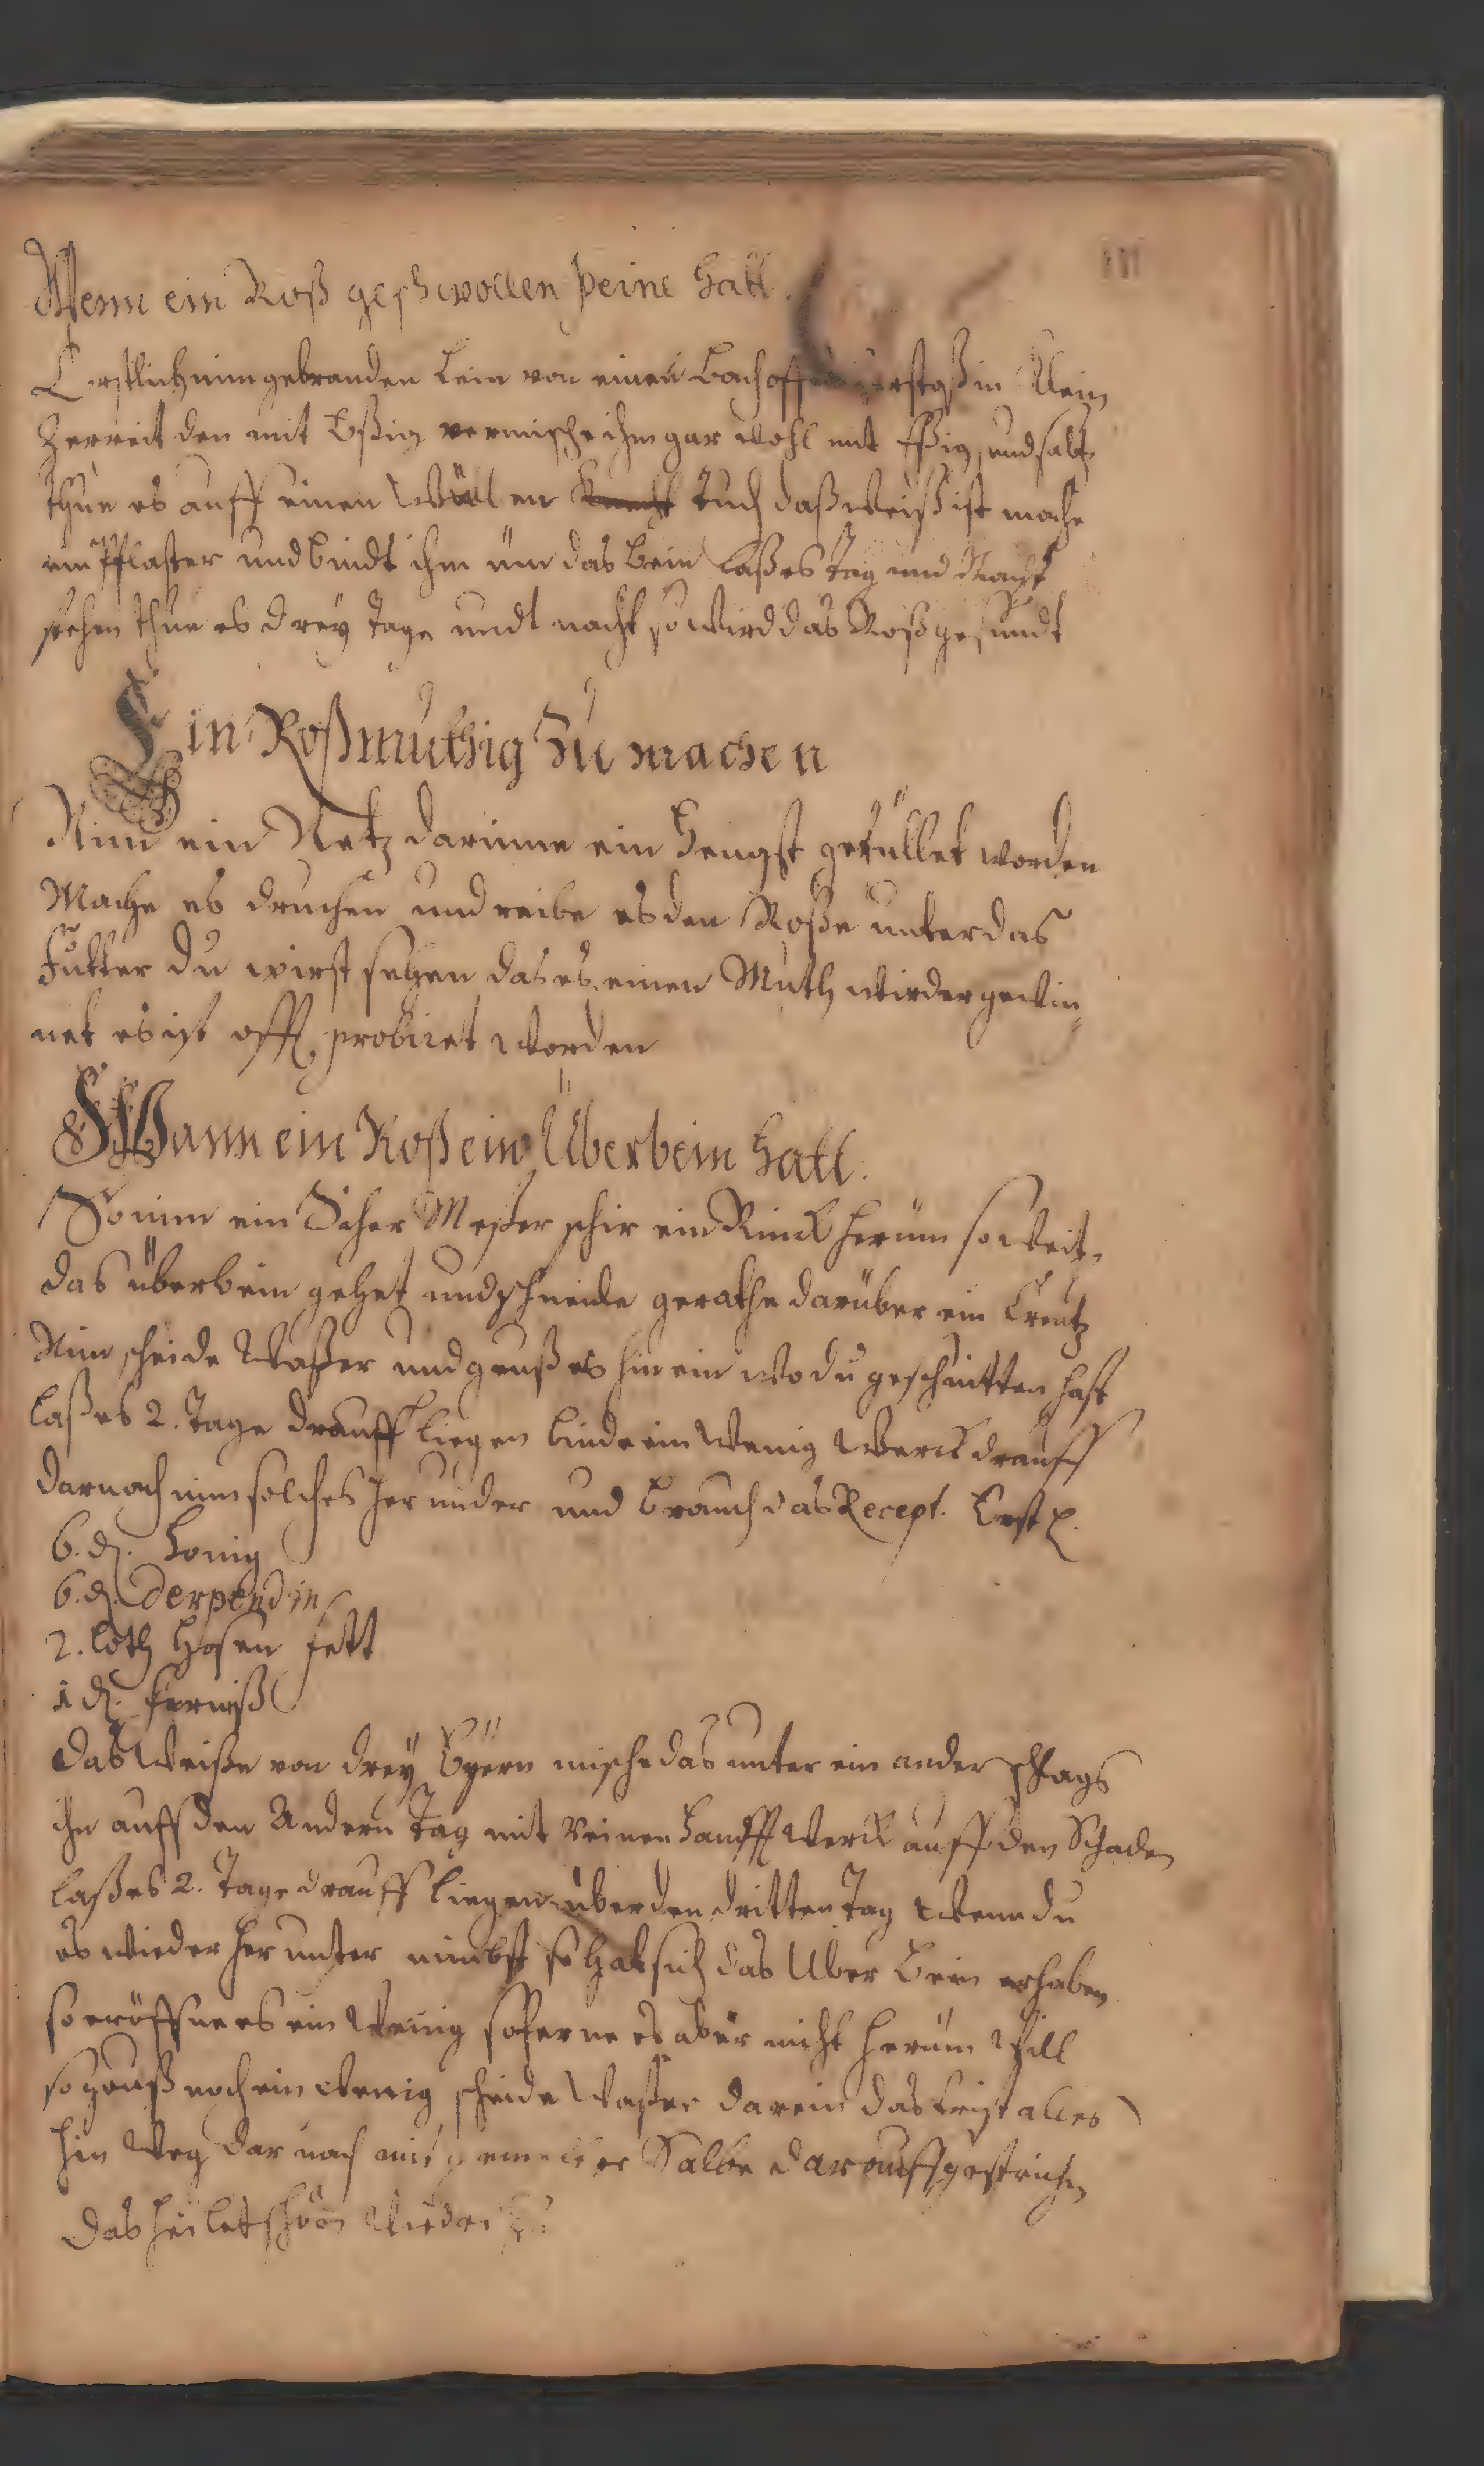 111
Wenn ein Roß geschwollen beine hatt.
Erstlich nim gebranden Leim von einen Bachoffen zerstoß in klein
Zerreit den mit Eßig vermische ihm gar wohl mit Eßig, und saltz
thue es auff einen Wüllen Tuch daß weiß ist mache
ein Pflaster und bindt ihm üm das Bein laß es Tag und Nacht
stehen thue es drey Tage undt nacht so wird das Roß gesundt
Ein Roß muthig Zu machen
Nim ein Netz darinne ein Hengst gefüllet worden
Mache es druchen und reibe es den Roße unter das
Futter du wirst sehen das es einen Muth wieder gewin
net es ist offt probiret worden
Wann ein Roß ein Überbein hatt.
So nim ein Scher Meßer schir ein Rinck herüm so weit
das überbein gehet und schneide gerathe darüber ein Creutz
Nim scheide Waßer und geuß es hin ein wo du geschnitten hast
laß es 2. Tage drauff liegen binde ein wenig Werck drauff
darnach nim solches her under und brauch das Recept. Erstl.
6. d. Honig
6. d. Derpendin
2. loth Hasen fett
1 d. ferniß
das Weiße von drey Eyern mische das unter ein ander schlags
ihn auff den Andern Tag mit reinen Hanff Werck auff den Schaden
laß es 2. Tage drauff liegen über den dritten Tag wenn du
es wieder her unter nimbst so hat sich das Uber Bein erhaben
so eröffne es ein wenig soferne es aber nicht herüm will
so geuß noch ein wenig scheide Waßer darein das frist alles
hin weg dar nach mit Salbe darauff gestrichen
das heilet schön wieder Zu